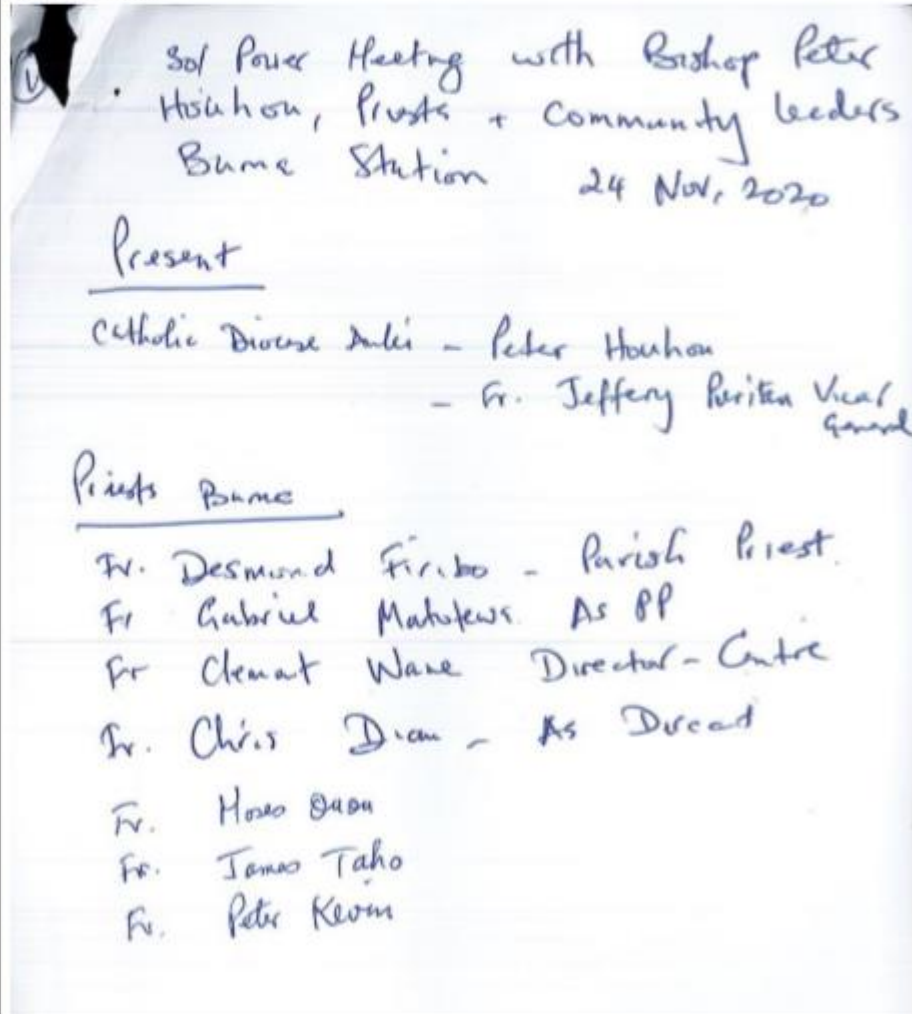 ①
Sol Power Meeting with Bishop Peter
Houhou, Priests + Community leaders
Buma Station 24 Nov, 2020
Present
Catholic Diocese Auki - Peter Houhou
- Fr. Jeffery Vicar
General
Priests Buma
Fr. Desmond Firibo - Parish Priest.
Fr Gabriel As PP
Fr Clemat Wane Director - Centre
Fr. Chris - As
Fr. Moses
Fr. James Taho
Fr. Peter Kevin